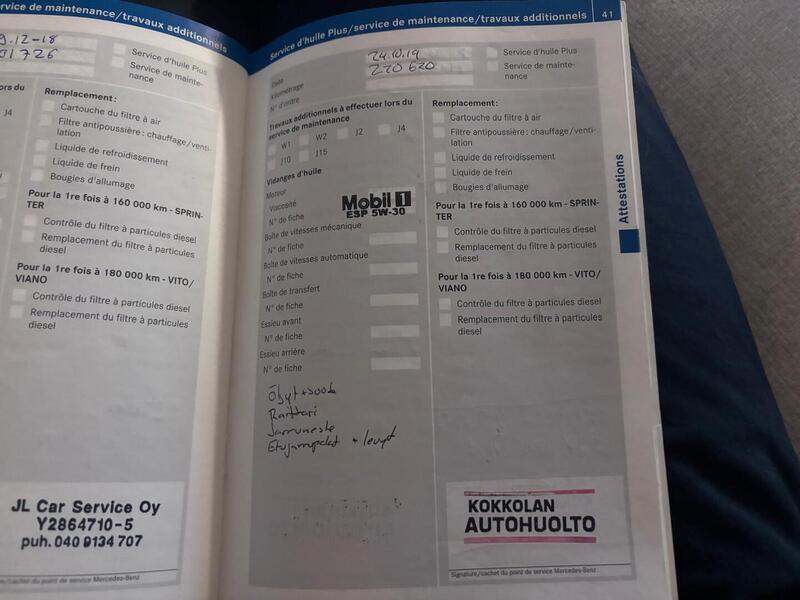 rvice de maintenance/travaux additionnels
9.12-18
01726
Service d'huile Plus
Service de mainte-
nance
ors du
J4
Remplacement:
Cartouche du filtre à air
Filtre antipoussière: chauffage/venti-
lation
Liquide de refroidissement
Liquide de frein
Bougies d'allumage
Pour la 1re fois à 160 000 km - SPRIN-
TER
Contrôle du filtre à particules diesel
Remplacement du filtre à particules
diesel
Pour la 1re fois à 180 000 km - VITO/
VIANO
Contrôle du filtre à particules diesel
Remplacement du filtre à particules
diesel
JL Car Service Oy
Y2864710-5
puh. 040 9134 707
e/cachet du point de service Mercedes-Benz
Service d'huile Plus/service de maintenance/travaux additionnels
41
Date
24.10.19
Kilométrage
220 620
N° d'ordre
Service d'huile Plus
Service de mainte-
nance
Travaux additionnels à effectuer lors du
service de maintenance
W1 W2 J2 J4
J10 J15
Vidanges d'huile
Moteur
Viscosité
Mobil 1
ESP 5W-30
N° de fiche
Boîte de vitesses mécanique
N° de fiche
Boîte de vitesses automatique
N° de fiche
Boîte de transfert
N° de fiche
Essieu avant
N° de fiche
Essieu arrière
N° de fiche
Raittari
Jarruneste
Etujarrupalat + levyt
Remplacement:
Cartouche du filtre à air
Filtre antipoussière: chauffage/venti-
lation
Liquide de refroidissement
Liquide de frein
Bougies d'allumage
Pour la 1re fois à 160 000 km - SPRIN-
TER
Contrôle du filtre à particules diesel
Remplacement du filtre à particules
diesel
Pour la 1re fois à 180 000 km - VITO/
VIANO
Contrôle du filtre à particules diesel
Remplacement du filtre à particules
diesel
KOKKOLAN
AUTOHUOLTO
Signature/cachet du point de service Mercedes-Benz
Attestations